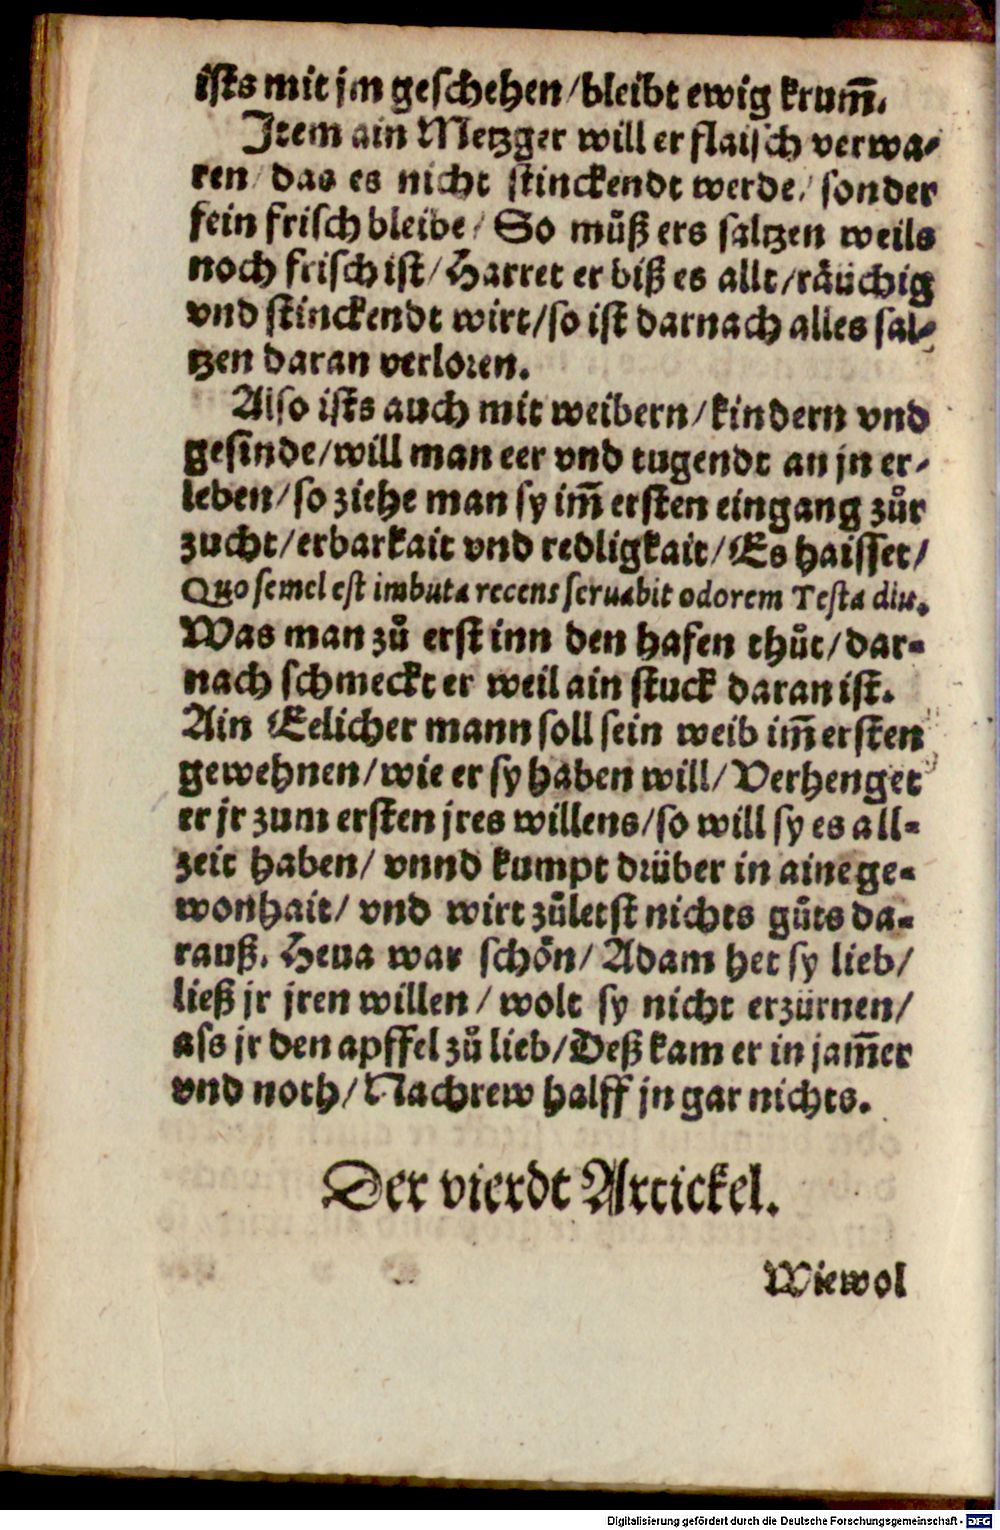 iſts mit jm geſchehen / bleibt ewig krum̄.
Item ain Metzger will er flaiſch verwa-
ren / das es nicht ſtinckendt werde / ſonder
fein friſch bleibe / So můß ers ſaltzen weils
noch friſch iſt / Harret er biß es allt / räüchig
vnd ſtinckendt wirt / ſo iſt darnach alles ſal-
tzen daran verloren.
Alſo iſts auch mit weibern / kindern vnd
geſinde / will man eer vnd tugendt an jn er-
leben / ſo ziehe man ſy im̄ erſten eingang zůr
zucht / erbarkait vnd redligkait / Es haiſſet /
Quo ſemel eſt imbuta recens ſeruabit odorem Teſta diu.
Was man zů erſt inn den hafen thůt / dar-
nach ſchmeckt er weil ain ſtuck daran iſt.
Ain Eelicher mann ſoll ſein weib im̄ erſten
gewehnen / wie er ſy haben will / Verhenget
er jr zum erſten jres willens / ſo will ſy es all-
zeit haben / vnnd kumpt drüber in aine ge-
wonhait / vnd wirt zůletſt nichts gůts da-
rauß. Heua war ſchön / Adam het ſy lieb /
ließ jr jren willen / wolt ſy nicht erzürnen /
ass jr den apffel zů lieb / Deß kam er in jam̄er
vnd noth / Nachrew halff jn gar nichts.
Der vierdt Artickel.
Wiewol
Digitalisierung gefördert durch die Deutsche Forschungsgemeinschaft - DFG